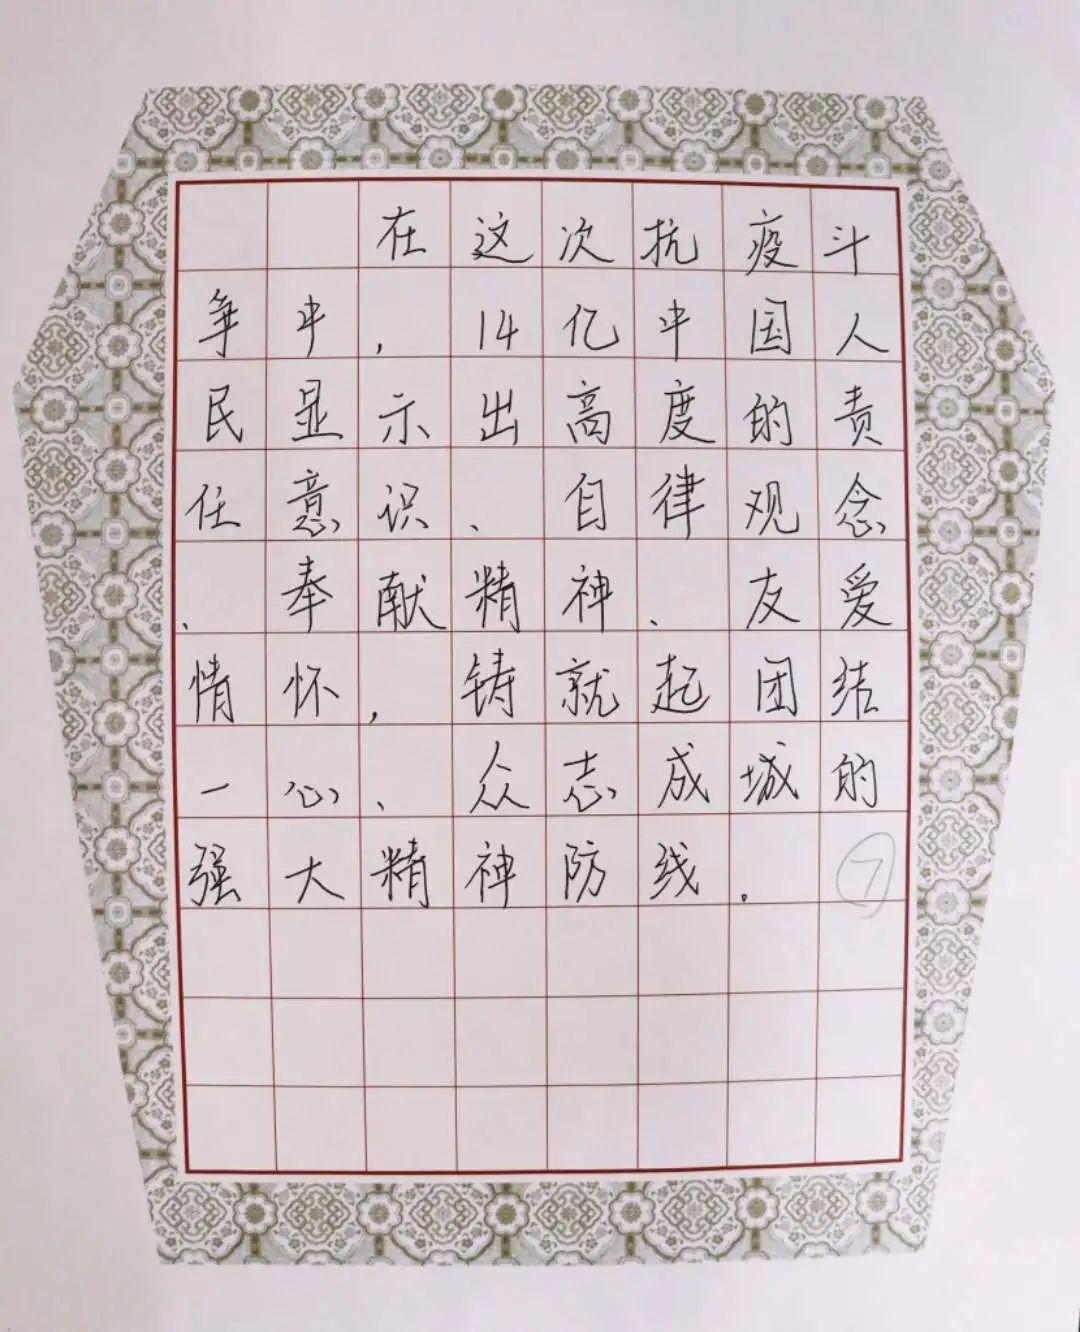 在这次抗疫斗
争中，14亿中国人
民显示出高度的责
任意识、自律观念
、奉献精神、友爱
情怀，铸就起团结
一心、众志成城的
强大精神防线。 7